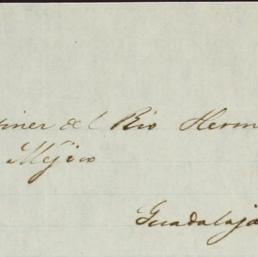 iner del Rio Herm
Méjico
Guadalaja